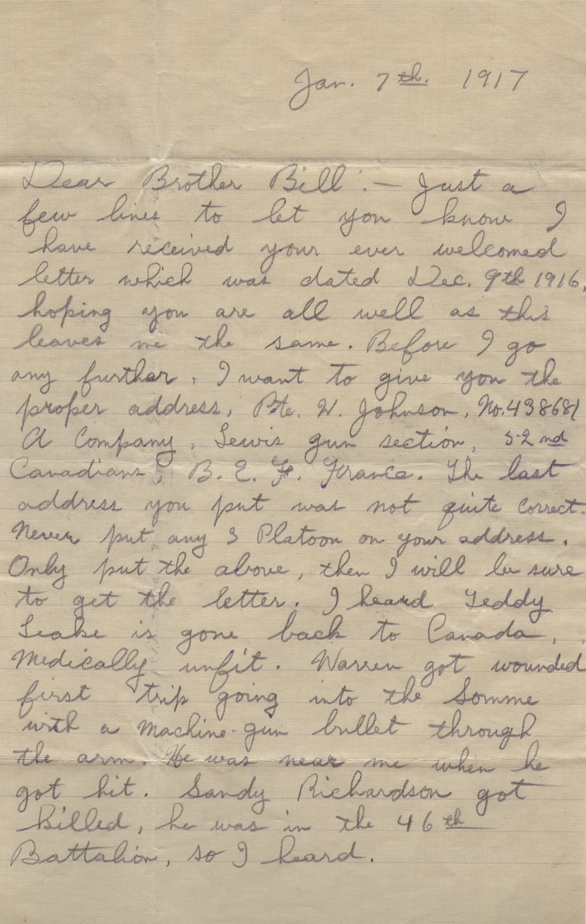 Jan. 7th. 1917
Dear Brother Bill :- Just a
few lines to let you know I
have received your ever welcomed
letter which was dated Dec. 9th 1916,
hoping you are all well as this
leaves me the same. Before I go
any further, I want to give you the
proper address, Pte. W. Johnson, No. 438681
A Company, Lewis gun section, 52nd
Canadians, B. E. F. France. The last
address you put was not quite correct.
Never put any 3 Platoon on your address.
Only put the above, then I will be sure
to get the letter. I heard Teddy
Leake is gone back to Canada,
Medically unfit. Warren got wounded
first trip going into the Somme
with a machine-gun bullet through
the arm. He was near me when he
got hit. Sandy Richardson got
killed, he was in the 46th
Battalion, so I heard.